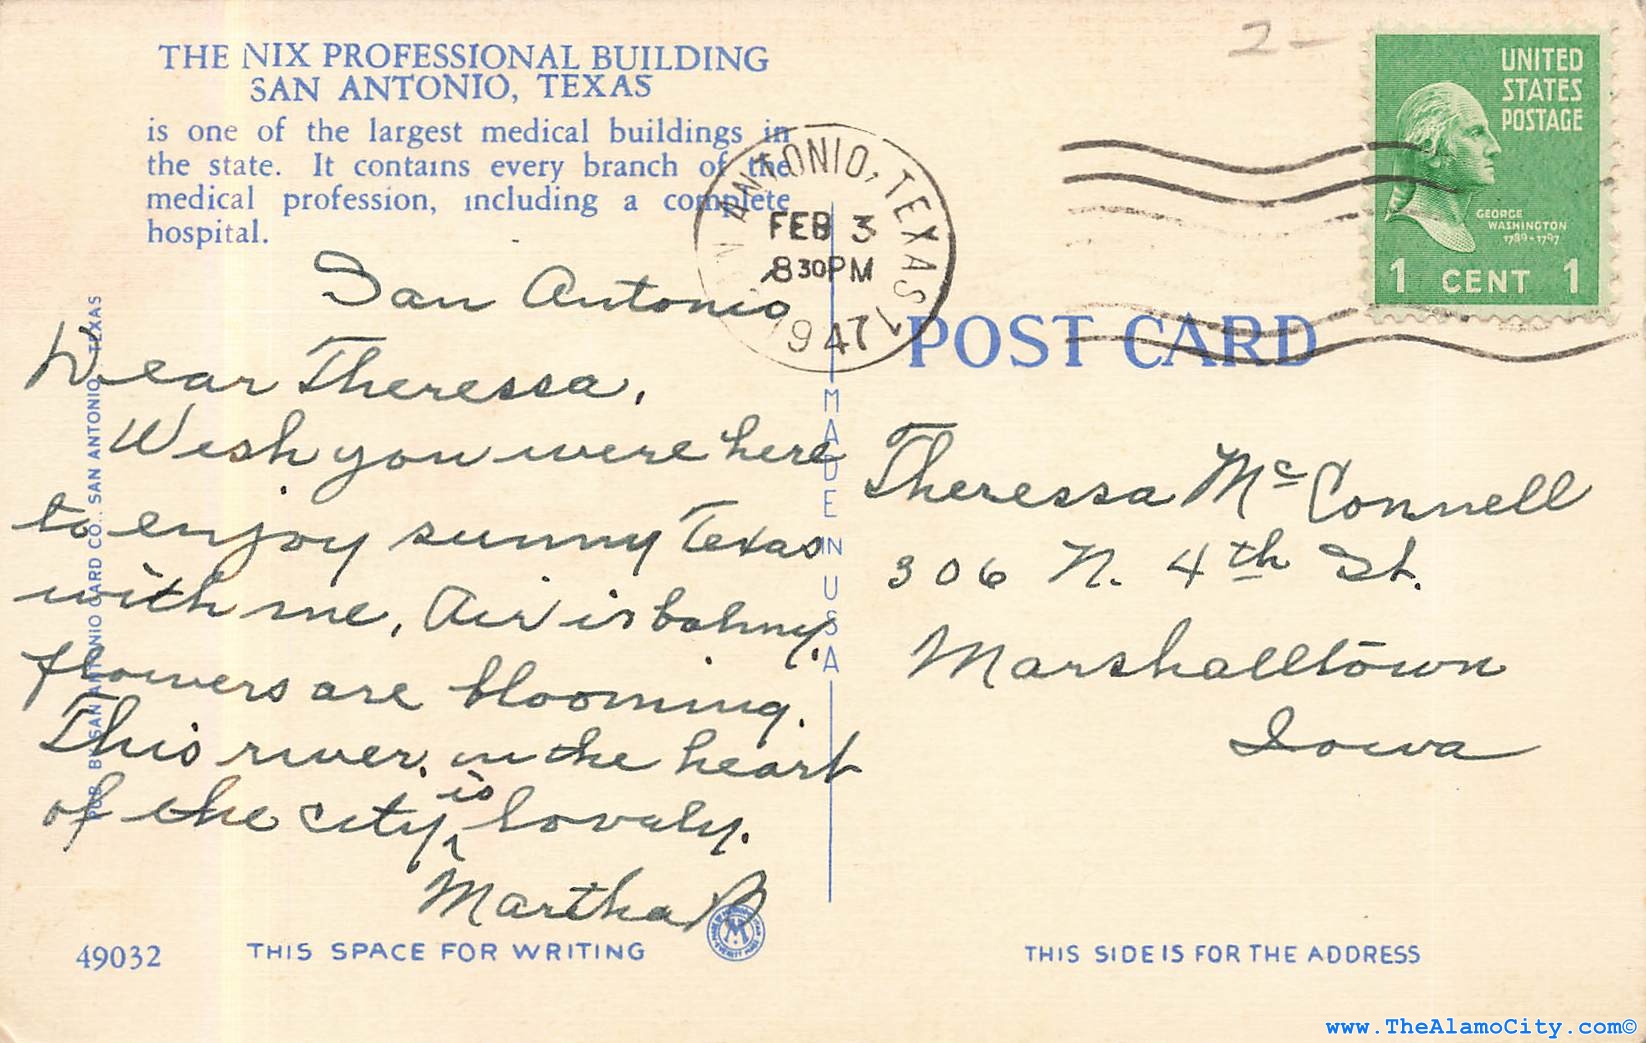 2 -
THE NIX PROFESSIONAL BUILDING
SAN ANTONIO, TEXAS
is one of the largest medical buildings in
the state. It contains every branch of the
medical profession, including a complete
hospital.
ANTONIO, TEXAS 1
FEB 3
8 30 PM
1947
UNITED
STATES
POSTAGE
GEORGE
WASHINGTON
1789-1797
1 CENT 1
POST CARD
San Antonio
Dear Theressa,
Wish you were here
to enjoy sunny Texas
with me, Air is balmy,
flowers are blooming.
This river, in the heart
of the city is lovely.
Martha
Theressa McConnell
306 N. 4th St.
Marshalltown
Iowa
PUB. BY SAN ANTONIO CARD CO., SAN ANTONIO, TEXAS
MADE IN USA
49032
THIS SPACE FOR WRITING
M
THIS SIDE IS FOR THE ADDRESS
www.TheAlamoCity.com©